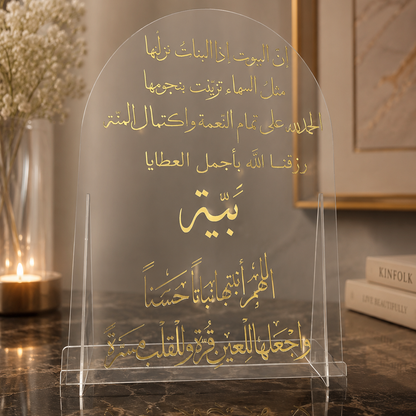 إنّ البيوت إذا البناتُ نزلْنها
مثلُ السماءِ تزيّنت بنجومها
الحمدلله على تمام النعمة واكتمال المنّة
رزقنا الله بأجمل العطايا
اللهُمَّ أنبتها نباتاً حَسَناً
واجْعَلها للعينِ قُرّة وللقلب
KINFOLK
LIVE BEAUTIFULLY